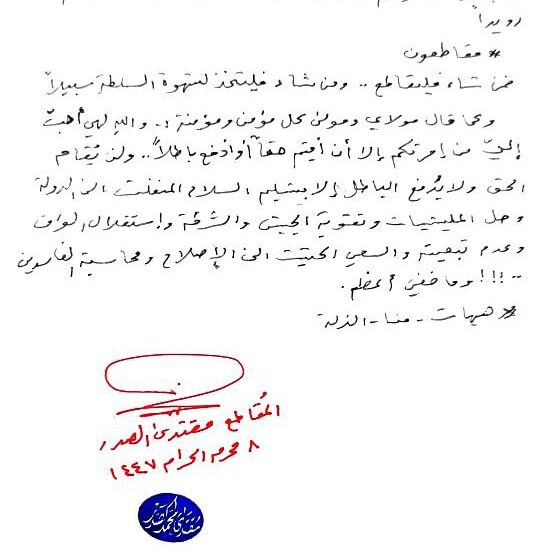 رويداً
# مقاطعون
فمن شاء فليقاطع .. ومن شاء فليتخذ لشهوة السلطة سبيلاً
وكما قال مولاي ومولى كل مؤمن ومؤمنة: .. والله لهي أحبّ
إليّ من إمرتكم إلا أن أقيم حقاً أو أدفع باطلاً .. ولن يُقام
الحق ولا يُدفع الباطل إلا بتسليم السلاح المنفلت الى الدولة
وحل المليشيات وتقوية الجيش والشرطة وإستقلال العراق
وعدم تبعيته والسعي الحثيث الى الإصلاح ومحاسبة الفاسدين
.. !!! وما خفي أعظم .
# هيهات - منا - الذلة
المُقاطع مقتدى الصدر
٨ محرم الحرام ١٤٤٧